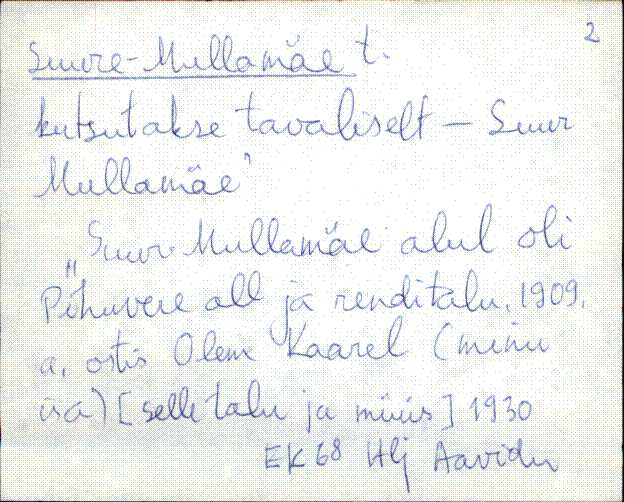 2
Suure-Mullamäe t.
kutsutakse tavaliselt – Suur
Mullamäe'
„Suur-Mullamäe alul oli
Pihuvere all ja renditalu. 1909.
a. ostis Olem Kaarel (minu
isa) [selle talu ja müüs] 1930
EK 68 Hlj Aavidu